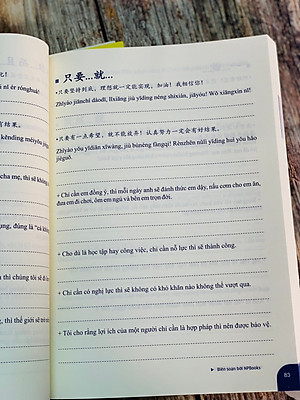 ■ 只要...就...
ㅤ!
ní ér rónghuá!
•只要坚持到底，理想就一定能实现。加油！我相信你！
Zhǐyào jiānchí dàodǐ, lǐxiǎng jiù yīdìng néng shíxiàn, jiāyóu! Wǒ xiāngxìn nǐ!
结果。
kěndìng méiyǒu
•只要有一点希望，就不能放弃！认真努力一定会有好结果。
Zhǐyào yǒu yīdiǎn xīwàng, jiù bùnéng fàngqì! Rènzhēn nǔlì yīdìng huì yǒu hǎo
jiéguǒ.
cha mẹ, thì sẽ không
+ Chỉ cần em đồng ý, thì mỗi ngày anh sẽ đánh thức em dậy, nấu cơm cho em ăn,
đưa em đi chơi, ôm em ngủ và bên em trọn đời.
dụng, đúng là "cá không
+ Cho dù là học tập hay công việc, chỉ cần nỗ lực thì sẽ thành công.
u thì chúng tôi sẽ đi
+ Chỉ cần có nghị lực thì sẽ không có khó khăn nào không thể vượt qua.
ng, thì thế giới sẽ trở
+ Tôi cho rằng lợi ích của một người chỉ cần là hợp pháp thì nên được bảo vệ.
▶ Biên soạn bởi NPBooks
83